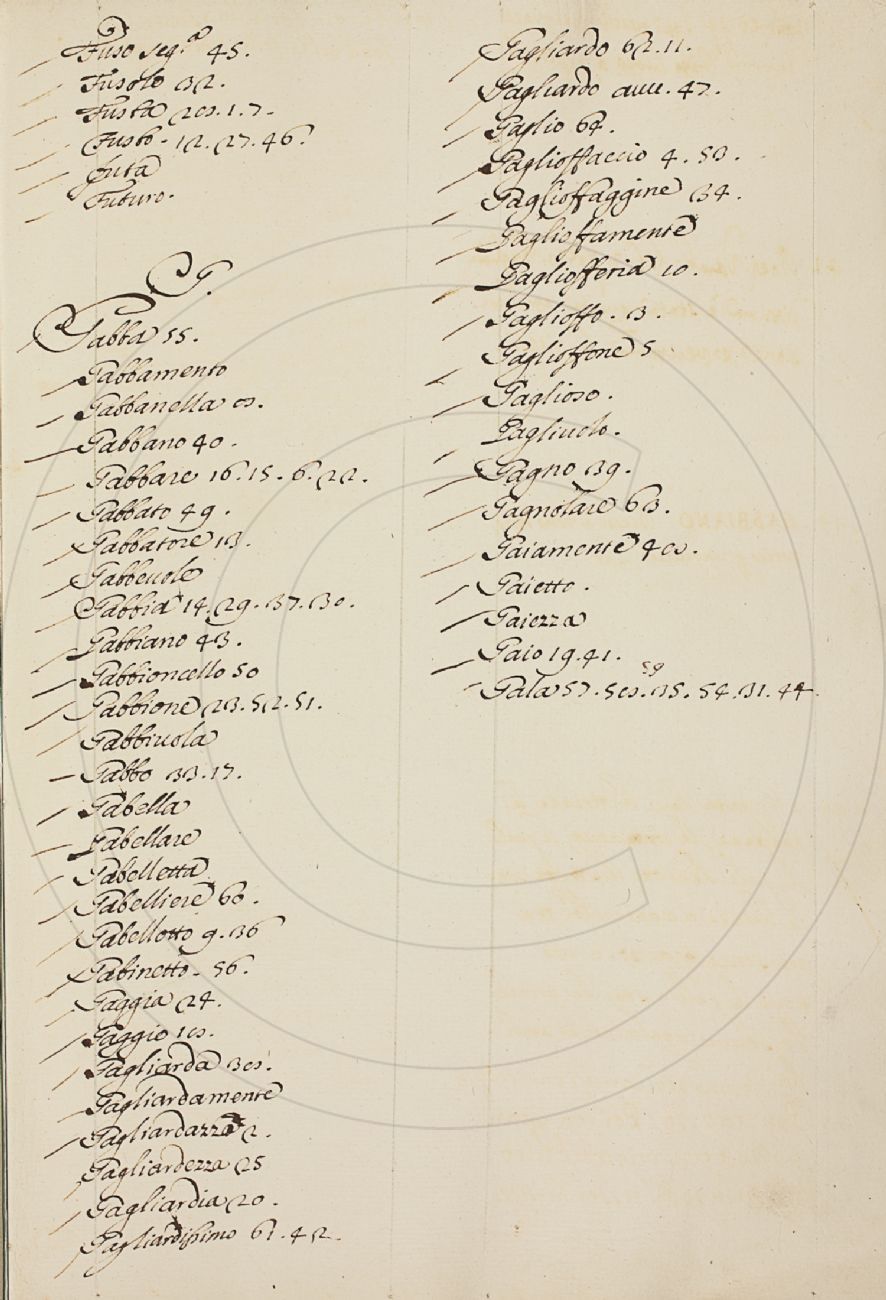 Fuso seg.ª 45.
Fusolo 32.
Fusta 28. 1. 7.
Fusto. 12. 27. 46.
futa
Futuro.
G.
Gabba 55.
Gabbamento
Gabbanella 8.
Gabbano 40.
Gabbare 16. 15. 6. 22.
Gabbato 49.
Gabbatore 13.
Gabbeuole
Gabbia 14. 29. 37. 30.
Gabbiano 43.
Gabbioncello 50
Gabbione 23. 52. 51.
Gabbiuola
Gabbo 33. 17.
Gabella
Gabellare
Gabelletta
Gabelliere 60.
Gabellotto 9. 36
Gabinetto. 56.
Gaggia 24.
Gaggio 18.
Gagliarda 38.
Gagliardamente
Gagliardazza 2.
Gagliardezza 25
Gagliardia 20.
Gagliardissimo 61. 42.
Gagliardo 62. 11.
Gagliardo auue. 47.
Gaglio 64.
Gaglioffaccio 4. 53.
Gaglioffaggine 34.
Gaglioffamente
Gagliofferia 10.
Gaglioffo. 3.
Gaglioffone 5
Gaglioso.
Gagliuolo.
Gagno 39.
Gagnolare 63.
Gaiamente 48.
Gaietto.
Gaiezza
Gaio 19. 41.
59
Gala 57. 58. 35. 54. 31. 44.